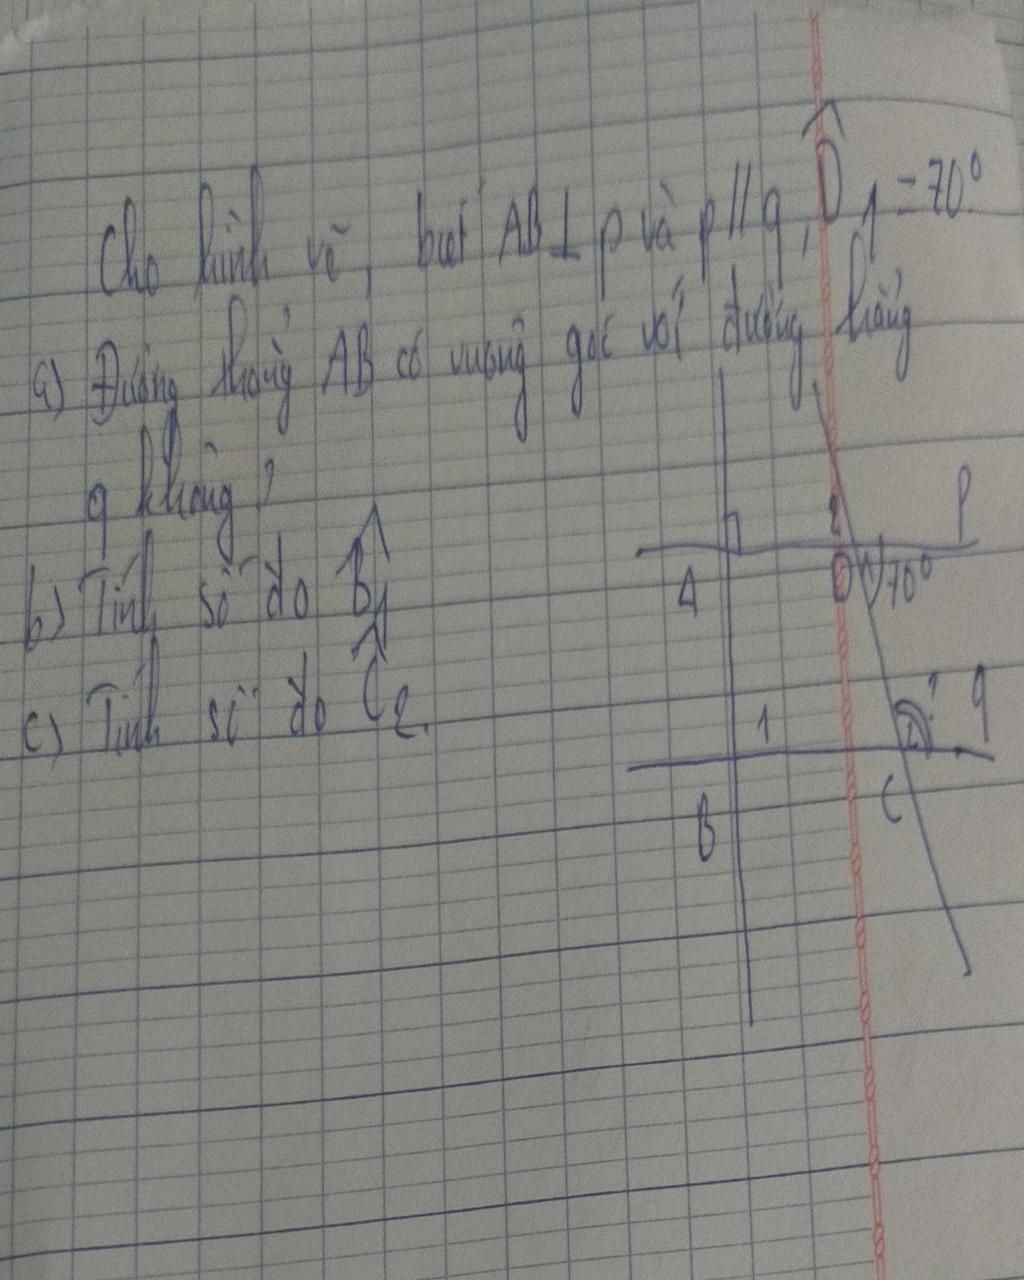 Cho hình vẽ, biết AB ⊥ p và p // q, D̂1 = 70°
a) Đường thẳng AB có vuông góc với đường thẳng
q không?
b) Tính số đo B̂1
c) Tính số đo Ĉ2.
2 p
A D 1 70°
1 2 1 q
B C